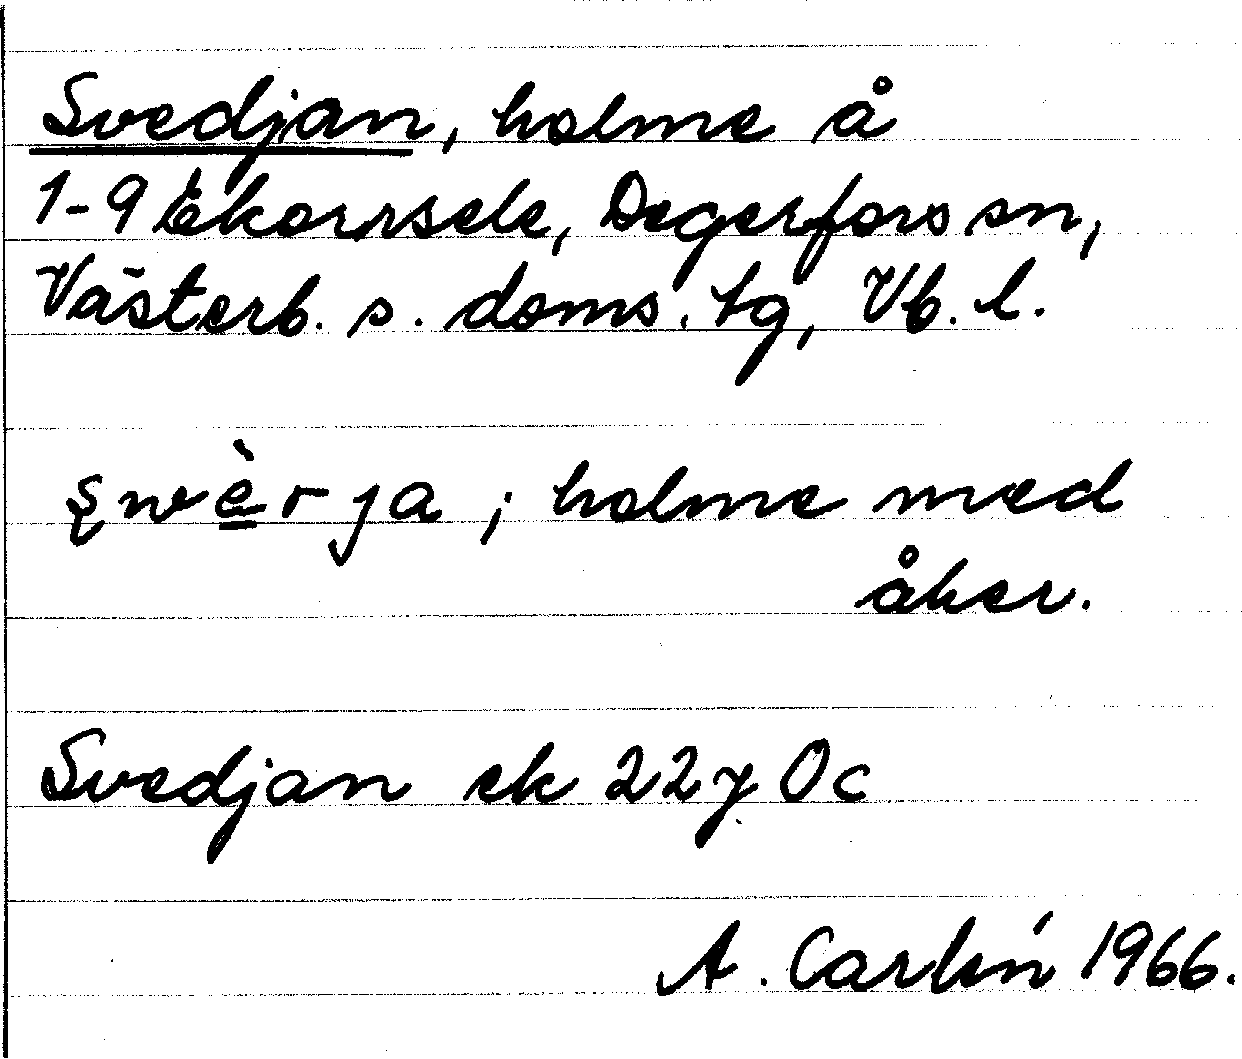 Svedjan, holme å
1-9 Ekorrsele, Degerfors sn,
Västerb. s. doms. tg, Vb. l.
holme med
åker.
Svedjan ek 22 j 0c
A. Carlén 1966.